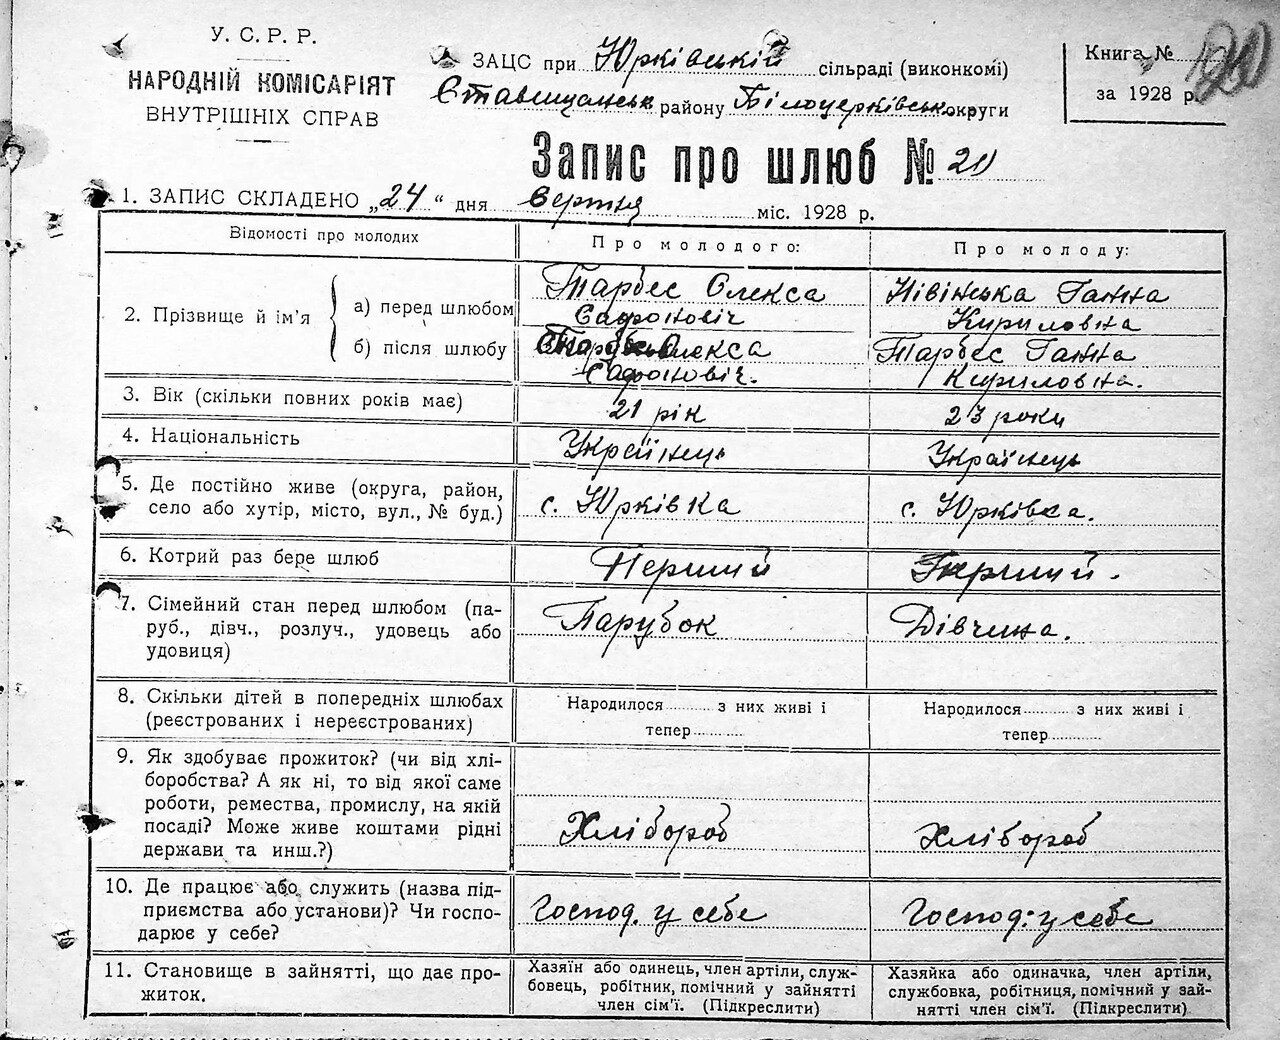 У. С. Р. Р.
НАРОДНІЙ КОМІСАРІЯТ
ВНУТРІШНІХ СПРАВ
ЗАЦС при Юрківській сільраді (виконкомі)
Ставищанськ району Білоцерківськ округи
Книга №
за 1928 р.
20
Запис про шлюб № 20
1. ЗАПИС СКЛАДЕНО „24“ дня Вертня міс. 1928 р.
Відомості про молодих
Про молодого:
Про молоду:
2. Прізвище й ім'я
а) перед шлюбом
Тарбес Олекса
Сафонович
Нівінська Ганна
Кириловна
б) після шлюбу
Олекса
Сафоновіч.
Тарбес Ганна
Кириловна.
3. Вік (скільки повних років має)
21 рік
23 роки
4. Національність
Украінець
Украінець
5. Де постійно живе (округа, район,
село або хутір, місто, вул., № буд.)
с. Юрківка
с. Юрківка.
6. Котрий раз бере шлюб
Перший
Перший.
7. Сімейний стан перед шлюбом (па-
руб., дівч., розлуч., удовець або
удовиця)
Парубок
Дівчина.
8. Скільки дітей в попередніх шлюбах
(реєстрованих і нереєстрованих)
Народилося.......... з них живі і
тепер............
Народилося.......... з них живі і
тепер............
9. Як здобуває прожиток? (чи від хлі-
боробства? А як ні, то від якої саме
роботи, ремества, промислу, на якій
посаді? Може живе коштами рідні
держави та инш.?)
Хлібороб
Хлібороб
10. Де працює або служить (назва під-
приємства або установи)? Чи госпо-
дарює у себе?
Господ. у себе
Господ: у себе
11. Становище в зайнятті, що дає про-
житок.
Хазяїн або одинець, член артіли, служ-
бовець, робітник, помічний у зайнятті
член сім'ї. (Підкреслити)
Хазяйка або одиначка, член артіли,
службовка, робітниця, помічний у зай-
нятті член сім'ї. (Підкреслити)